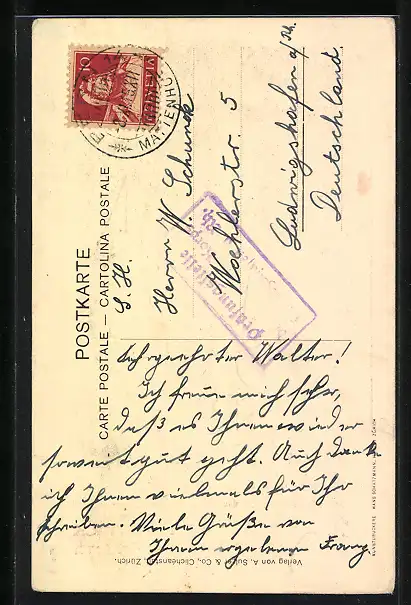 POSTKARTE
CARTE POSTALE — CARTOLINA POSTALE
S. H.
Herrn W. Schunck
Woehlerstr. 5
Ludwigshafen a/Rh.
Deutschland
10
HELVETIA
MATTENHOF
Prüfungsstelle
Sehr geehrter Walter!
Ich freue mich sehr,
daß es Ihnen wieder
soweit gut geht. Auch danke
ich Ihnen vielmals für Ihr
Schreiben. Viele Grüße von
Ihrem ergebenen Franz.
Verlag von A. & Co., Clichéanstalt, Zürich.
KUNSTDRUCKEREI HANS ZÜRICH